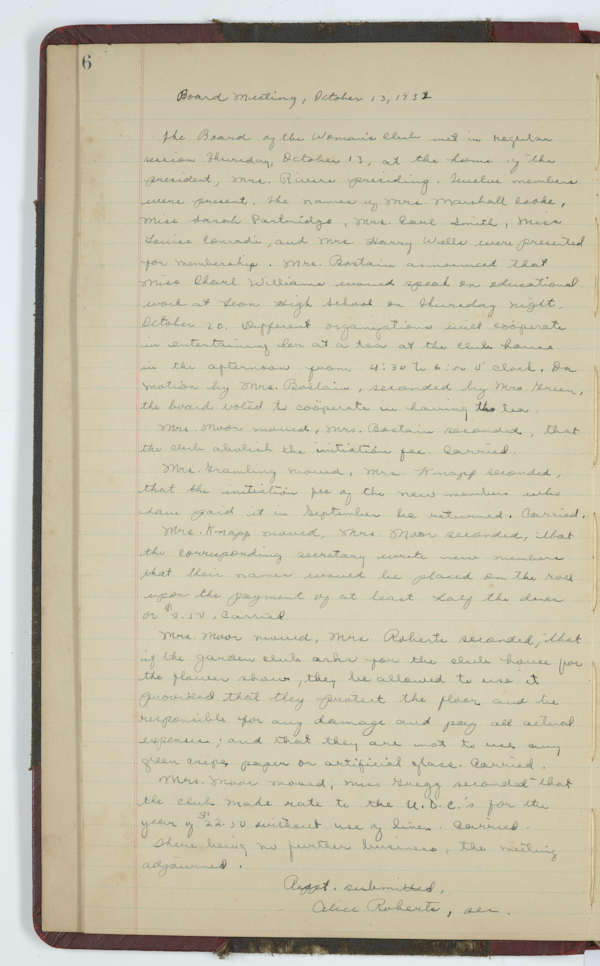 6
Board Meeting, October 13, 1932
The Board of the Woman's Club met in regular
session Thursday, October 13, at the home of the
president, Mrs. Rivers presiding. Twelve members
were present. The names of Mrs. Marshall Cooke,
Miss Sarah Partridge, Mrs. Carl Smith, Miss
Louise Conradi, and Mrs. Harry Wells were presented
for membership. Mrs. Bostain announced that
Miss Charl Williams would speak on educational
work at Leon High School on Thursday night.
October 20. Different organizations will coöperate
in entertaining her at a tea at the club house
in the afternoon from 4:30 to 6:00 o'clock. On
motion by Mrs. Bostain, seconded by Mrs Green,
the board voted to coöperate in having the tea.
Mrs. Moor moved, Mrs. Bostain seconded, that
the club abolish the initiation fee. Carried.
Mrs. Gramling moved, Mrs. Knapp seconded,
that the initiation fee of the new members who
have paid it in September be returned. Carried.
Mrs. Knapp moved, Mrs Moor seconded, that
the corresponding secretary write new members
that their names would be placed on the roll
upon the payment of at least half the dues
or $2.50. Carried.
Mrs. Moor moved, Mrs Roberts seconded, that
if the garden club asks for the club house for
the flower show, they be allowed to use it
provided that they protect the floor and be
responsible for any damage and pay all actual
expenses; and that they are not to use any
green crepe paper or artificial glass. Carried.
Mrs. Moor moved, Miss Gregg seconded that
the club made rate to the U.D.C.'s for the
year of $22.50 without use of linen. Carried.
There being no further business, the meeting
adjourned.
Respt. submitted,
Alice Roberts, sec.